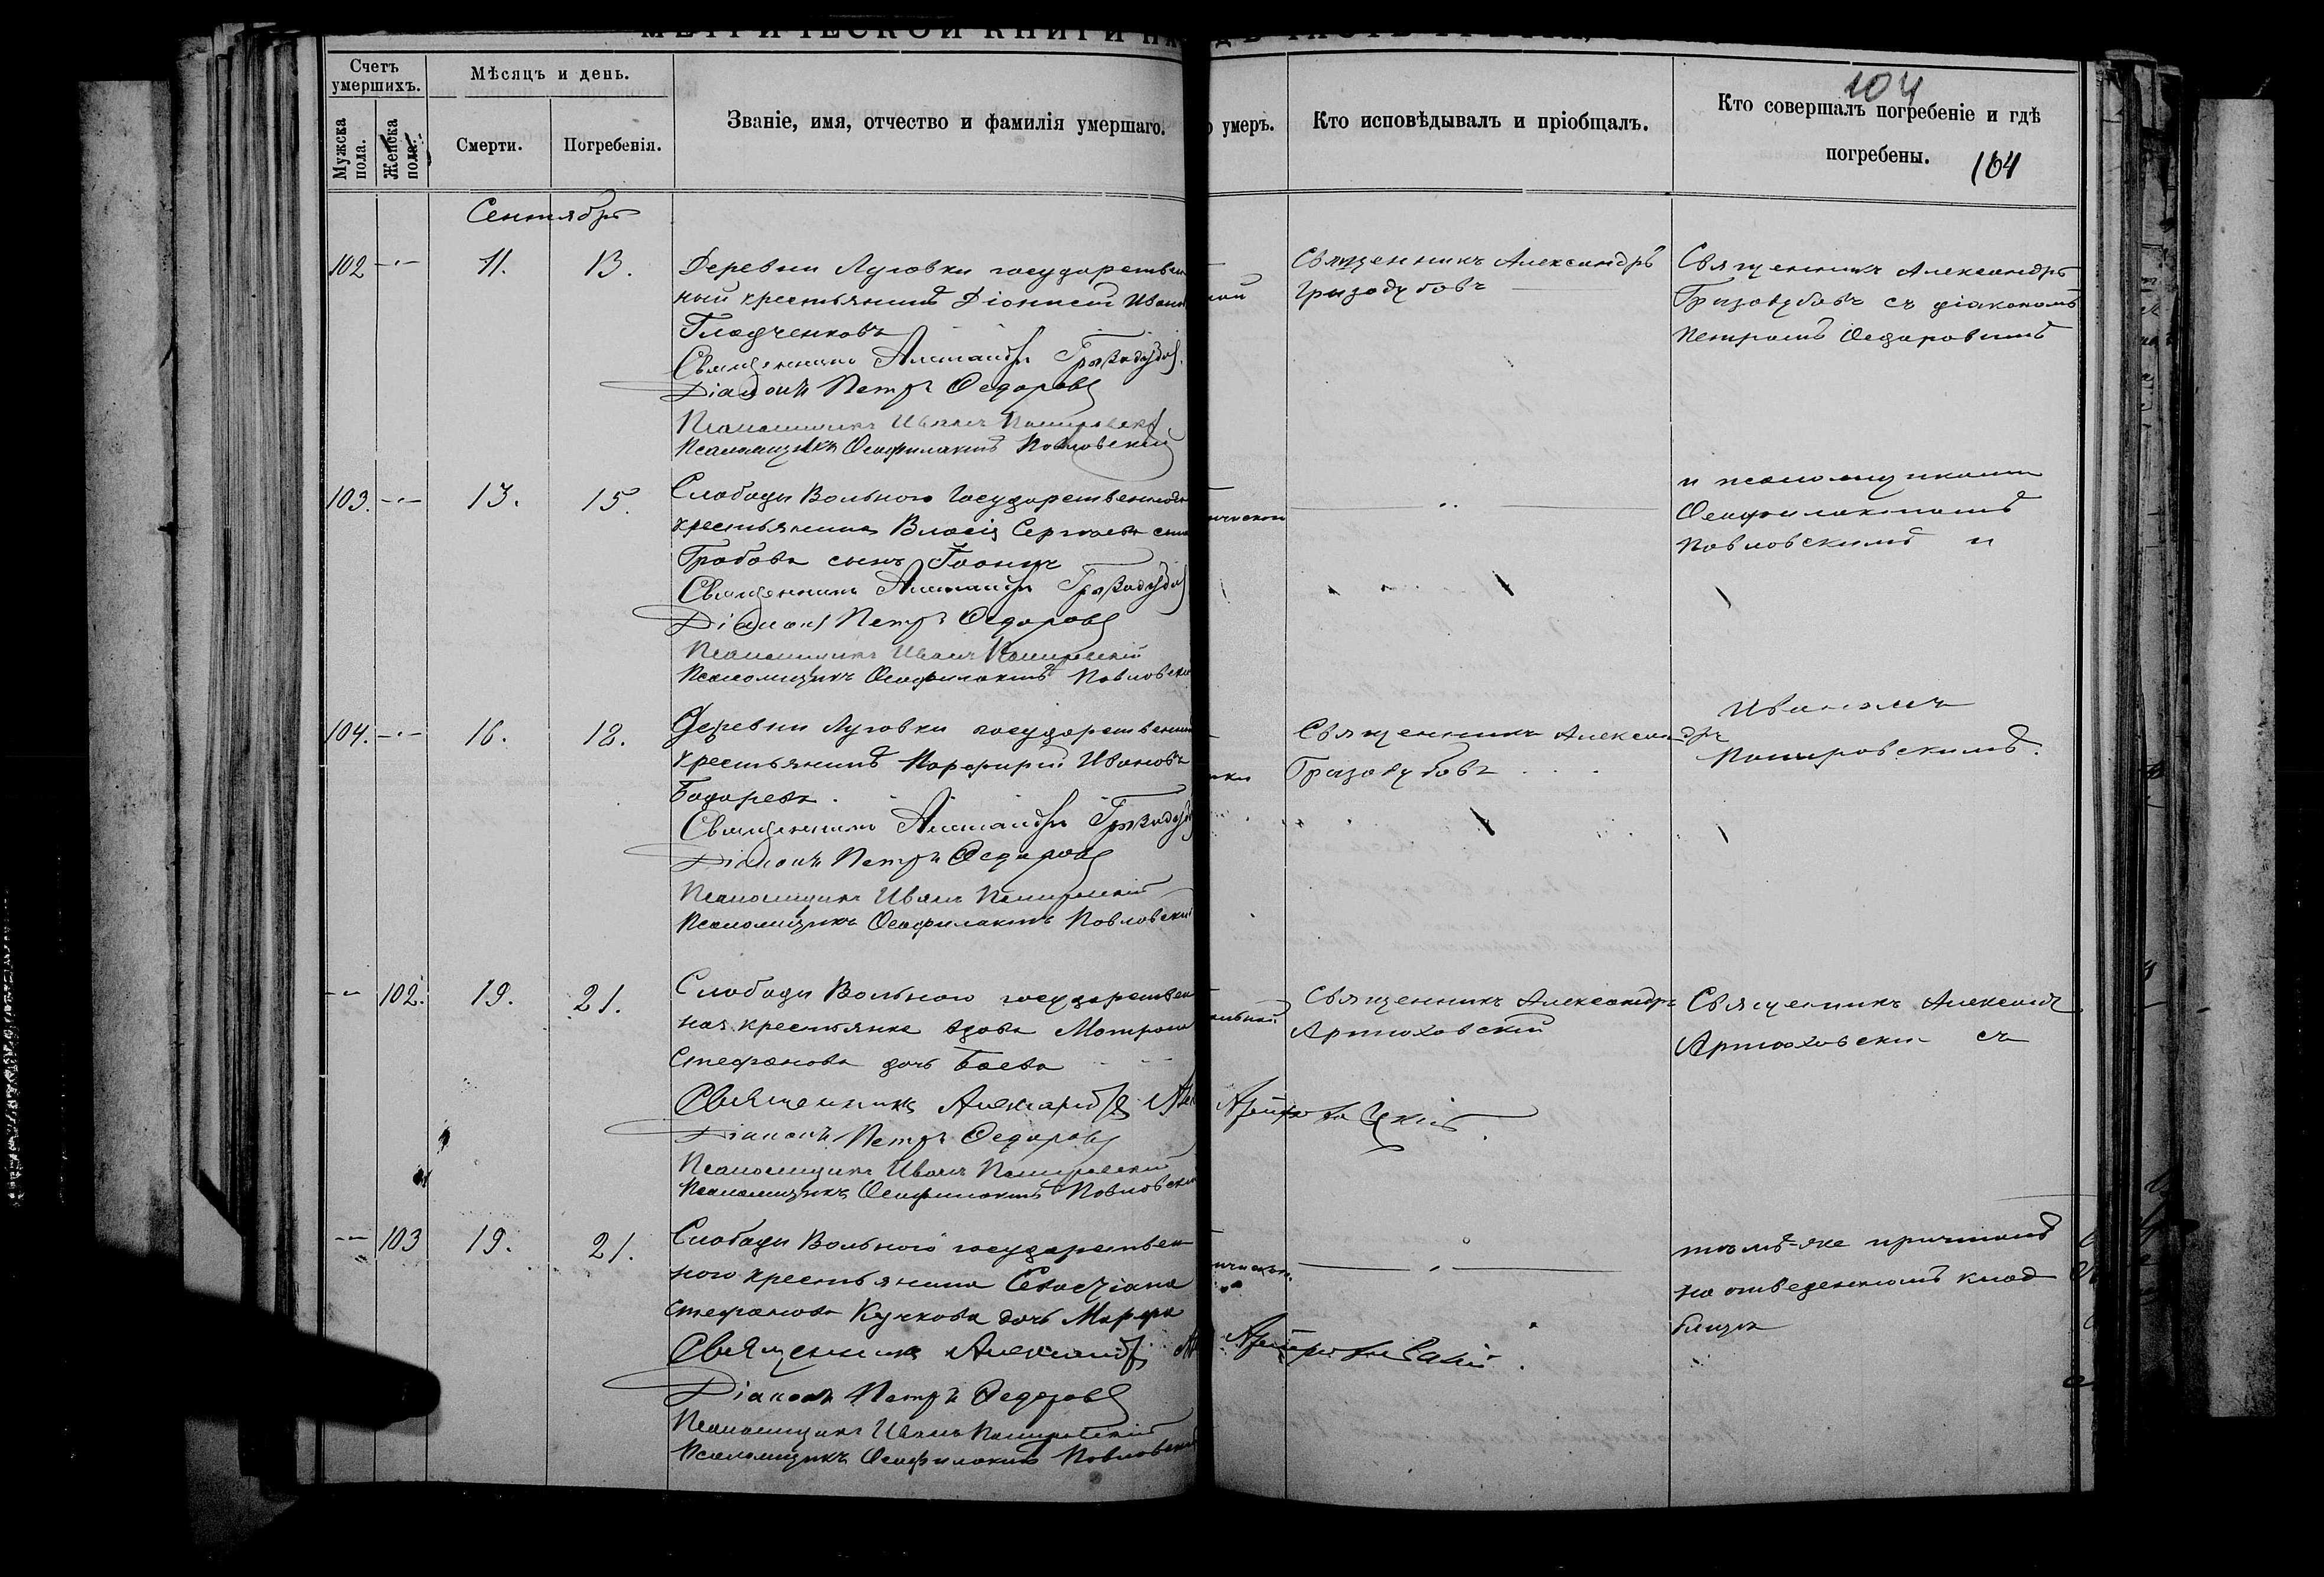 МЕТРИЧЕСКОЙ КНИГИ НА
ЧАСТЬ ТРЕТЬЯ,
Счетъ умершихъ.
Мужска пола.
Женска пола.
Мѣсяцъ и день.
Смерти.
Погребенія.
Званіе, имя, отчество и фамилія умершаго.
умеръ.
Кто исповѣдывалъ и пріобщалъ.
Кто совершалъ погребеніе и гдѣ
погребены.
104
104
Сентябрь
102 -·- 11. 13.
Деревни Луговки государствен
ный крестьянинъ Діонисій Иван
Гладченковъ
Священникъ Александръ Гризодубов
Діаконъ Петръ Ѳедоровъ
Псаломщикъ Иванъ
Псаломщикъ Ѳеофилактъ Павловскій
Священникъ Александръ
Гризодубовъ
Священникъ Александръ
Гризодубовъ съ діакономъ
Петромъ Ѳедоровымъ
103. -·- 13. 15.
Слободы Вольного Государственного
крестьянина Власія Сергѣева сына
Грабова сынъ Іоаннъ
Священникъ Александръ Гризодубов
Діаконъ Петръ Ѳедоровъ
Псаломщикъ Иванъ
Псаломщикъ Ѳеофилактъ Павловскі
и псаломщиками
Ѳеофилактомъ
Павловскимъ и
104. -·- 16. 18.
Деревни Луговки государственный
крестьянинъ Порфирій Ивановъ
Священникъ Александръ Гризодуб
Діаконъ Петръ Ѳедоровъ
Псаломщикъ Иванъ
Псаломщикъ Ѳеофилактъ Павловскі
Священникъ Александръ
Гризодубовъ
Иваномъ
-- 102. 19. 21.
Слободы Вольного государствен
ная крестьянка вдова Матрона
Стефанова дочь Баева
Священникъ Александръ Артюховскій
Діаконъ Петръ Ѳедоровъ
Псаломщикъ Иванъ
Псаломщикъ Ѳеофилактъ Павловскі
Священникъ Александръ
Артюховскій
Священникъ Александ
Артюховскі съ
-- 103 19. 21.
Слободы Вольного государствен
ного крестьянина Севастіана
Стефанова Кучкова дочь Марфа
Священникъ Александръ Артюховскій
Діаконъ Петръ Ѳедоровъ
Псаломщикъ Иванъ
Псаломщикъ Ѳеофилактъ Павловскі
тѣмъ-же причтомъ
на отведенномъ клад
бищѣ